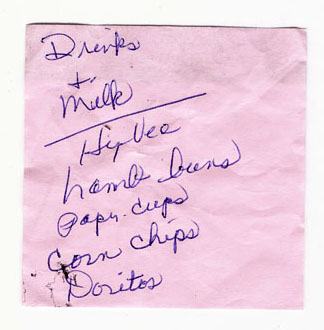 Drinks
+
Milk
Hy Vee
hamb buns
Paper cups
Corn chips
Doritos